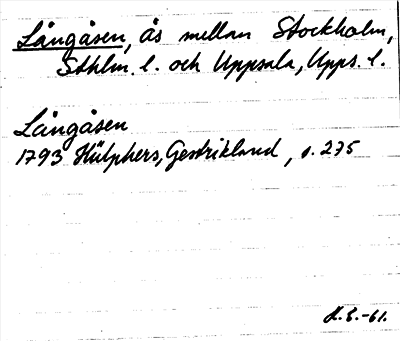 Långåsen, ås mellan Stockholm,
Sthlm. l. och Uppsala, Upps. l.
Långåsen
1793 Hülphers, Gestrikland, s. 275
H. S. -61.